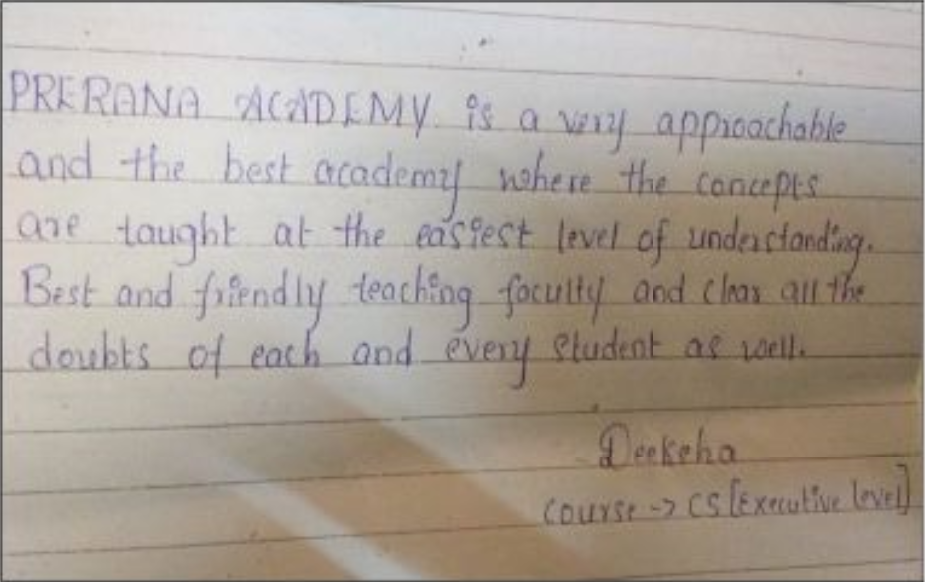 PRERANA ACADEMY is a very approachable
and the best academy where the concepts
are taught at the easiest level of understanding.
Best and friendly teaching faculty and clear all the
doubts of each and every student as well.
Deeksha
course -> CS [Executive level]